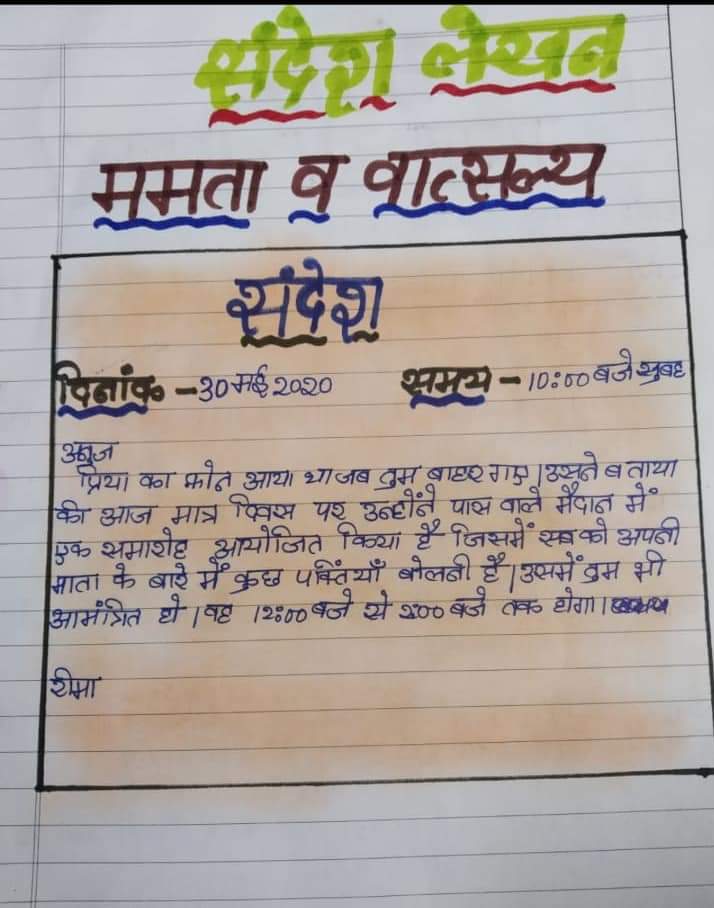 संदेश लेखन
ममता व वात्सल्य
संदेश
दिनांक - 30 मई 2020 समय - 10:00 बजे सुबह
अनुज
प्रिया का फोन आया था जब तुम बाहर गए। उसने बताया
की आज मात्र दिवस पर उन्होंने पास वाले मैदान में
एक समारोह आयोजित किया है जिसमें सब को अपनी
माता के बारे में कुछ पक्तियाँ बोलनी है। उसमें तुम भी
आमंत्रित हो। वह 12:00 बजे से 2:00 बजे तक होगा।
रीमा